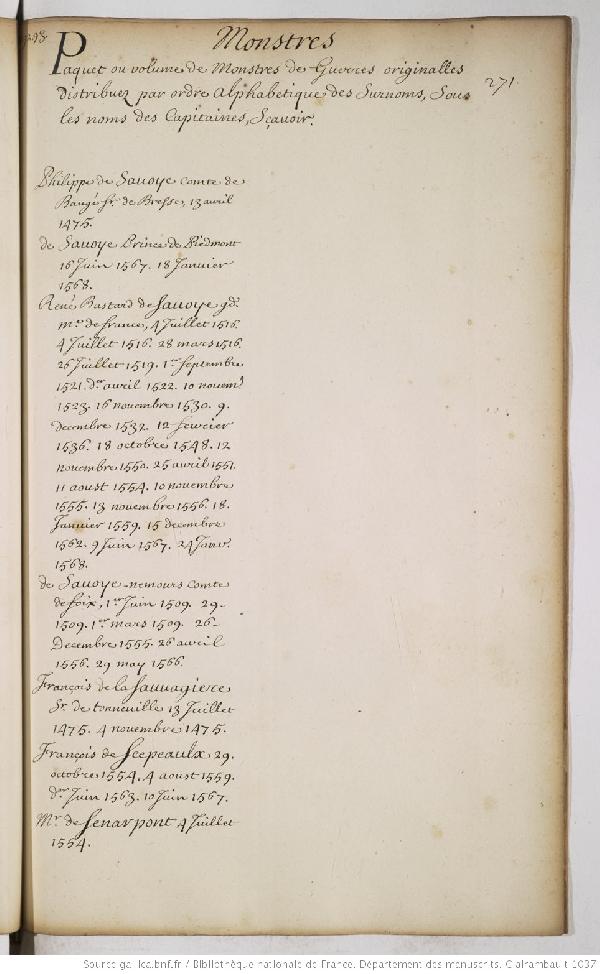 Monstres
Paquet ou volume de Monstres de Guerres originalles
Distribuez par ordre Alphabetique des Surnoms, Sous
les noms des Capitaines, Sçavoir.
271.
Philippe de Savoye Comte de
Baugé Sr. de Bresse, 13 avril
1475.
de Savoye Prince de Piedmont
16 Juin 1567. 18 Janvier
1568.
René Bastard de Savoye gd.
me. de france, 4 Juillet 1516.
4 Juillet 1516. 28 mars 1516.
26 Juillet 1519. 1er Septembre
1521. der avril 1522. 10 novem.
1523. 16 novembre 1530. 9.
decembre 1532. 12 fevrier
1536. 18 octobre 1548. 12
novembre 1550. 25 avril 1551.
11 aoust 1554. 10 novembre
1555. 13 novembre 1556. 18.
Janvier 1559. 15 decembre
1562. 9 Juin 1567. 24 Janv.
1568.
de Savoye-nemours Comte
de foix, 1er Juin 1509. 29-
1509. 1er mars 1509. 26-
Decembre 1555. 26 avril
1556. 29 may 1566.
François de la Sauvagiere
Sr. de tonneville 13 Juillet
1475. 4 novembre 1475.
François de Scepeaulx 29.
octobre 1554. 4 aoust 1559.
der Juin 1563. 10 Juin 1567.
Mr. de Senarpont 4 Juillet
1554.
Source gallica.bnf.fr / Bibliothèque nationale de France. Département des manuscrits. Clairambault 1037